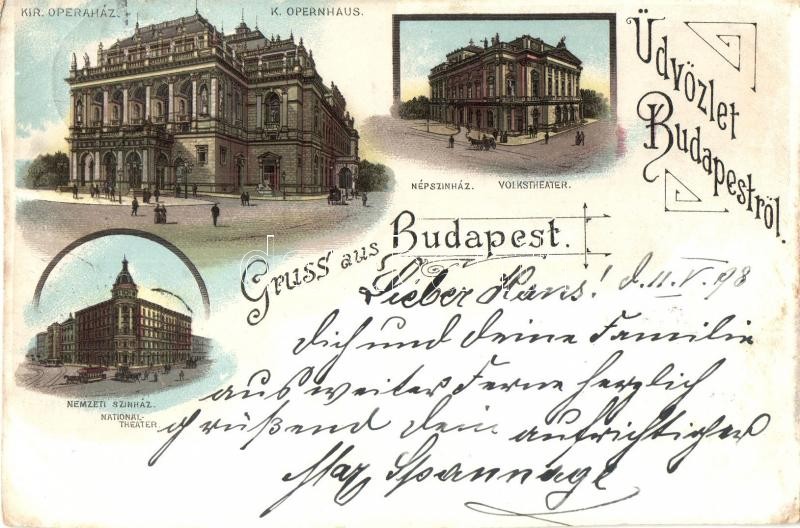 KIR. OPERAHÁZ. K. OPERNHAUS.
NÉPSZINHÁZ. VOLKSTHEATER.
Üdvözlet
Budapestről.
NEMZETI SZINHÁZ.
NATIONAL-
THEATER
Gruss aus Budapest.
Lieber Hans! d. 11. V. 98
Dich und deine Familie
aus weiter Ferne herzlich
grüßend dein aufrichtiger
Max Spannage